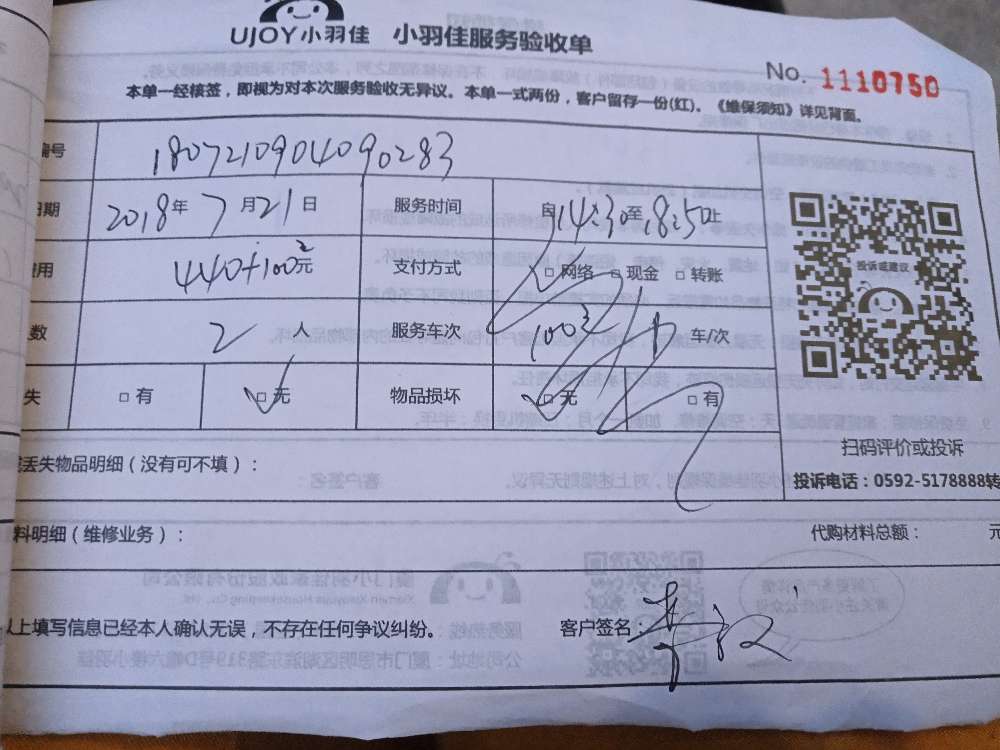 UJOY小羽佳 小羽佳服务验收单
No. 1110750
本单一经核签，即视为对本次服务验收无异议。本单一式两份，客户留存一份(红)。《维保须知》详见背面。
编号 1807210904090283
日期 2018年7月21日 服务时间 自14:30至18:50止
费用 440+100元 支付方式 □网络 □现金 □转账
数 2人 服务车次 车/次
失 □有 □无 物品损坏 □无 □有
投诉或建议
扫码评价或投诉
投诉电话：0592-5178888转
丢失物品明细（没有可不填）：
料明细（维修业务）： 代购材料总额： 元
以上填写信息已经本人确认无误，不存在任何争议纠纷。 客户签名：